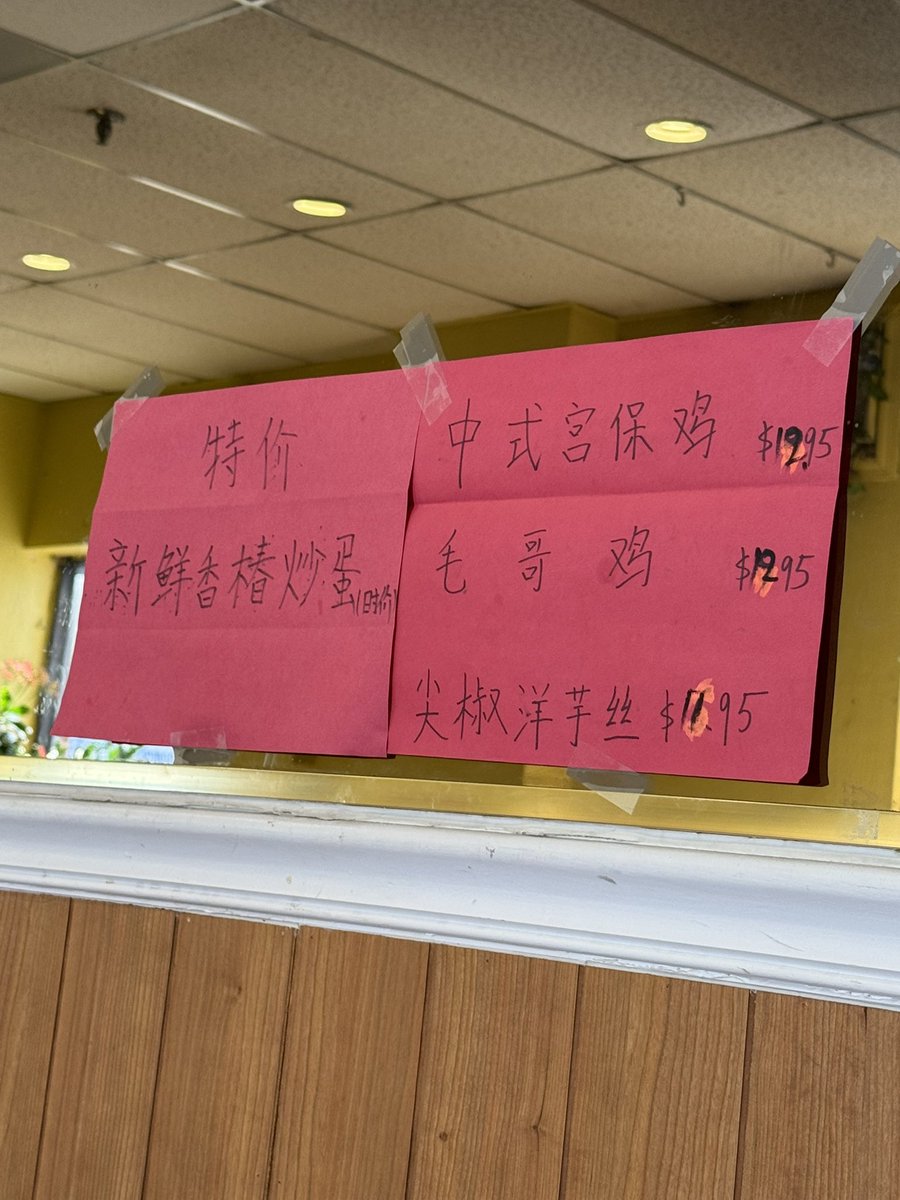 特价
新鲜香椿炒蛋(时价)
中式宫保鸡 $12.95
毛哥鸡 $12.95
尖椒洋芋丝 $11.95